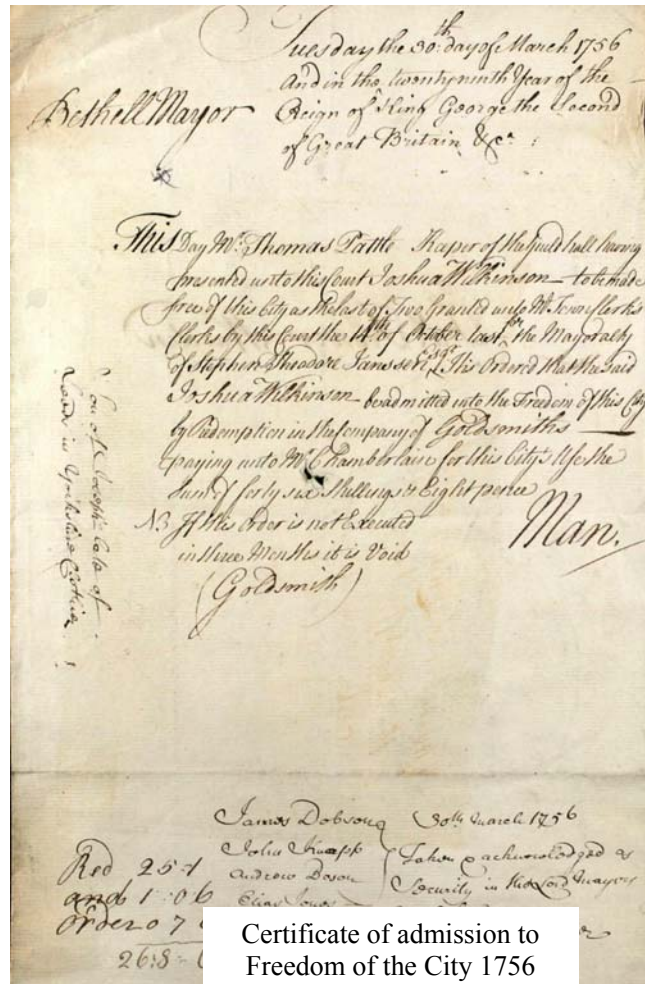 Tuesday the 30th day of March 1756
And in the twentyninth Year of the
Reign of King George the Second
of Great Britain &ca:
Bethell Mayor
This Day Mr. Thomas Pattle Keeper of the Guildhall having
presented unto this Court Joshua Wilkinson to be made
free of this City as the last of Two Granted unto Mr. Town Clerks
Clerks by this Court the 14th of October last in the Mayoralty
of Stephen Theodore Janssen Esqr. It is Ordered that the said
Joshua Wilkinson be admitted into the Freedom of this City
by Redemption in the Company of Goldsmiths
paying unto Mr. Chamberlain for this Citys Use the
Sum of forty six Shillings & Eight pence
NB If this Order is not Executed
in three Months it is Void
Man.
(Goldsmith)
Son of Joseph late of
Leeds in Yorkshire
James Dobson
John Knapp
Andrew
Elias Jones
30th March 1756
Taken & acknowledged as
Security in the Lord Mayors
Red 25-1
and 1:06
Order 0 7
26:8-
Certificate of admission to
Freedom of the City 1756